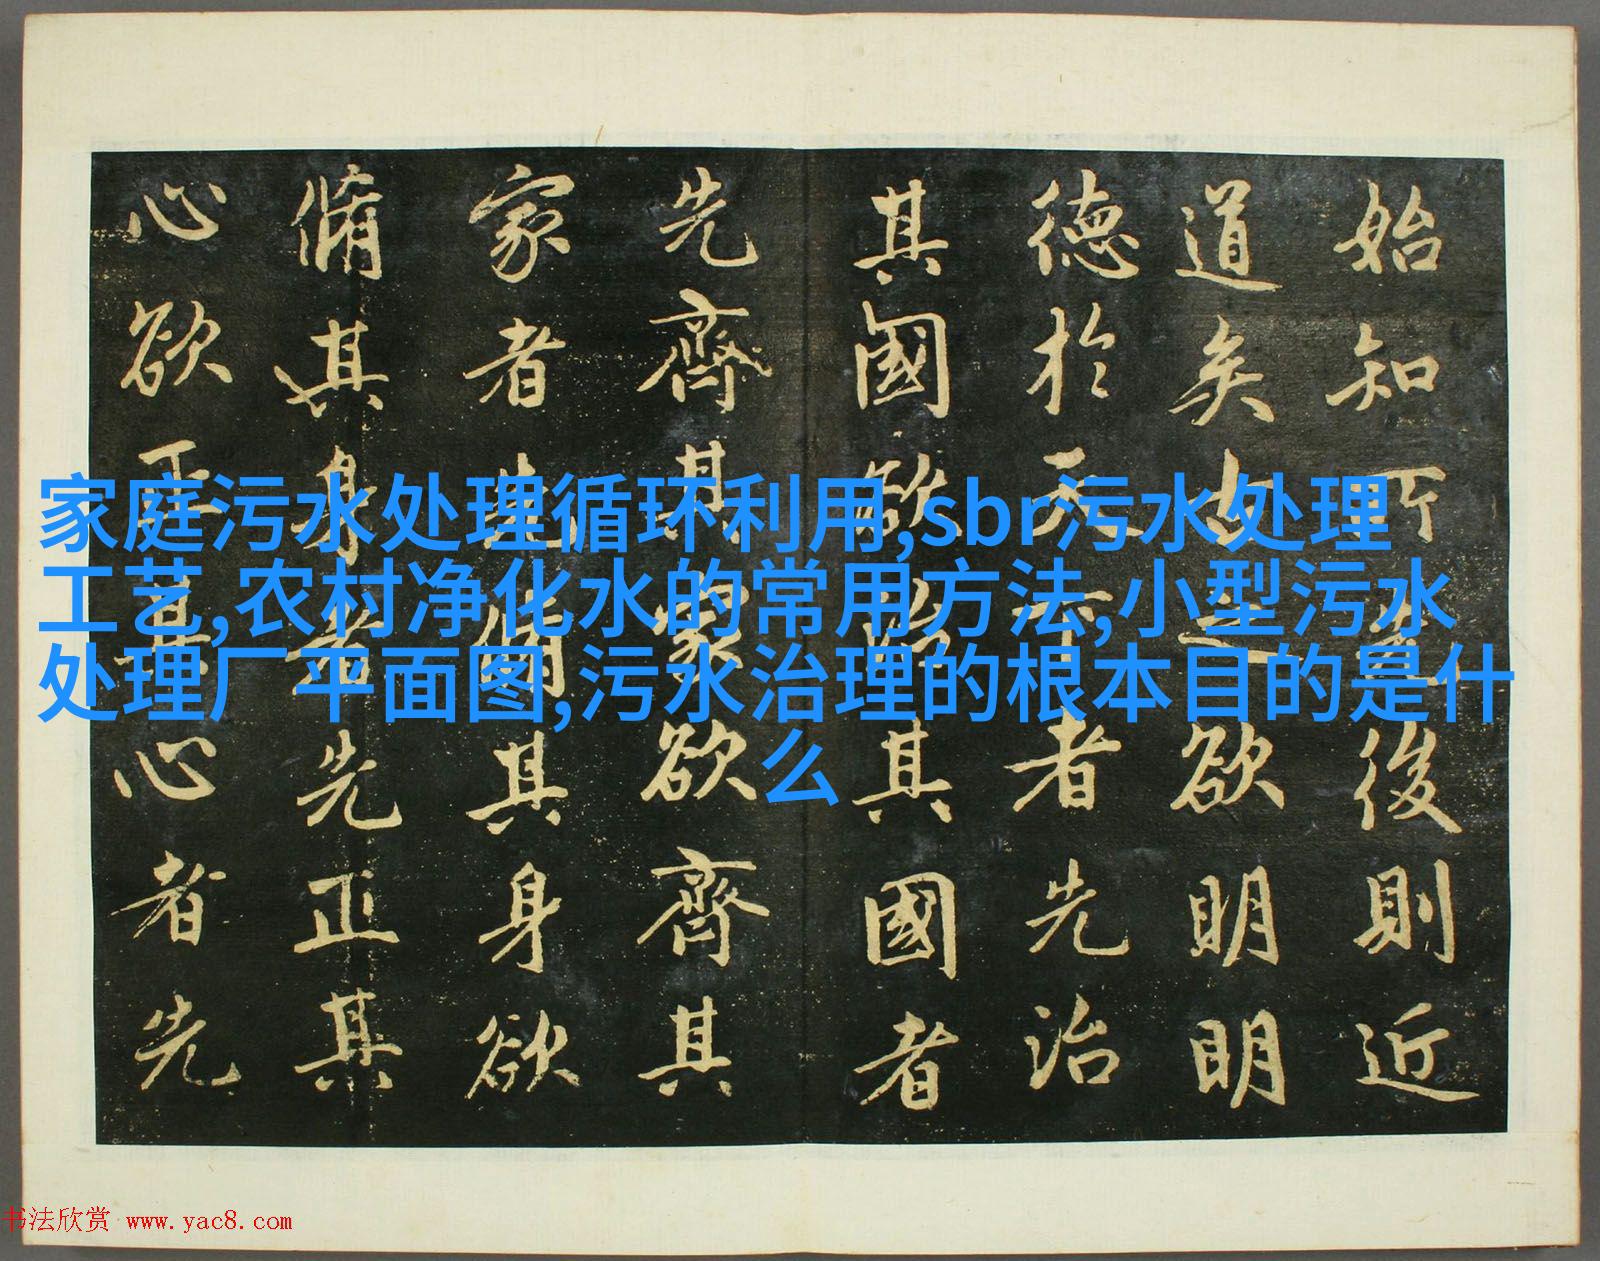 始知所先後則近
道矣古之欲明明
德於天下者先治
其國欲治其國者
先齊其家欲齊其
家者先脩其身欲
脩其身者先正其
心欲正其心者先
家庭污水处理循环利用,sbr污水处理
工艺,农村净化水的常用方法,小型污水
处理厂平面图,污水治理的根本目的是什
么
书法欣赏 www.yac8.com